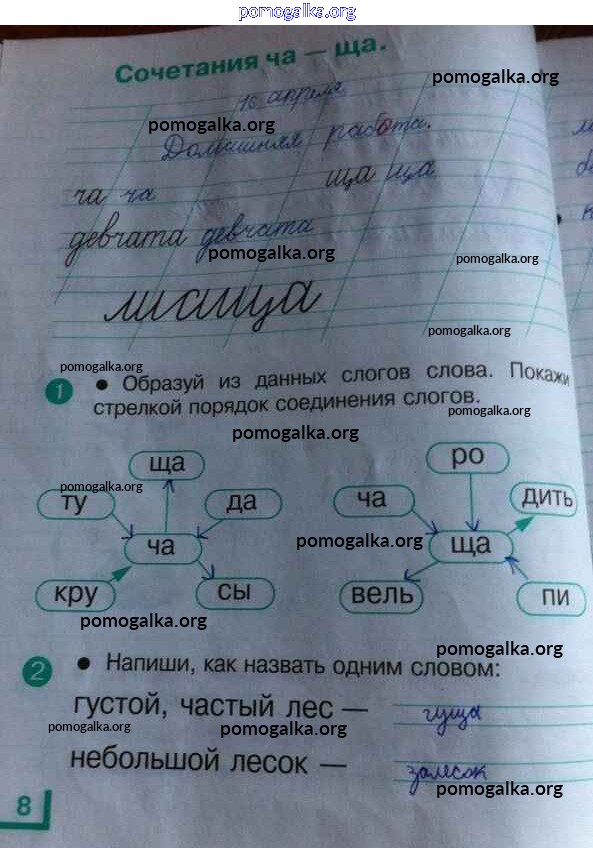 pomogalka.org
Сочетания ча — ща.
pomogalka.org
16 апреля
pomogalka.org
Домашняя работа.
ча ча ща ща
девчата девчата
pomogalka.org
pomogalka.org
pomogalka.org
pomogalka.org
1 • Образуй из данных слогов слова. Покажи
стрелкой порядок соединения слогов.
pomogalka.org
pomogalka.org
ща ро
pomogalka.org
ту да ча дить
ча pomogalka.org ща
кру сы вель пи
pomogalka.org
pomogalka.org
2 • Напиши, как назвать одним словом:
густой, частый лес — гуща
pomogalka.org pomogalka.org
небольшой лесок — залесок
pomogalka.org
8